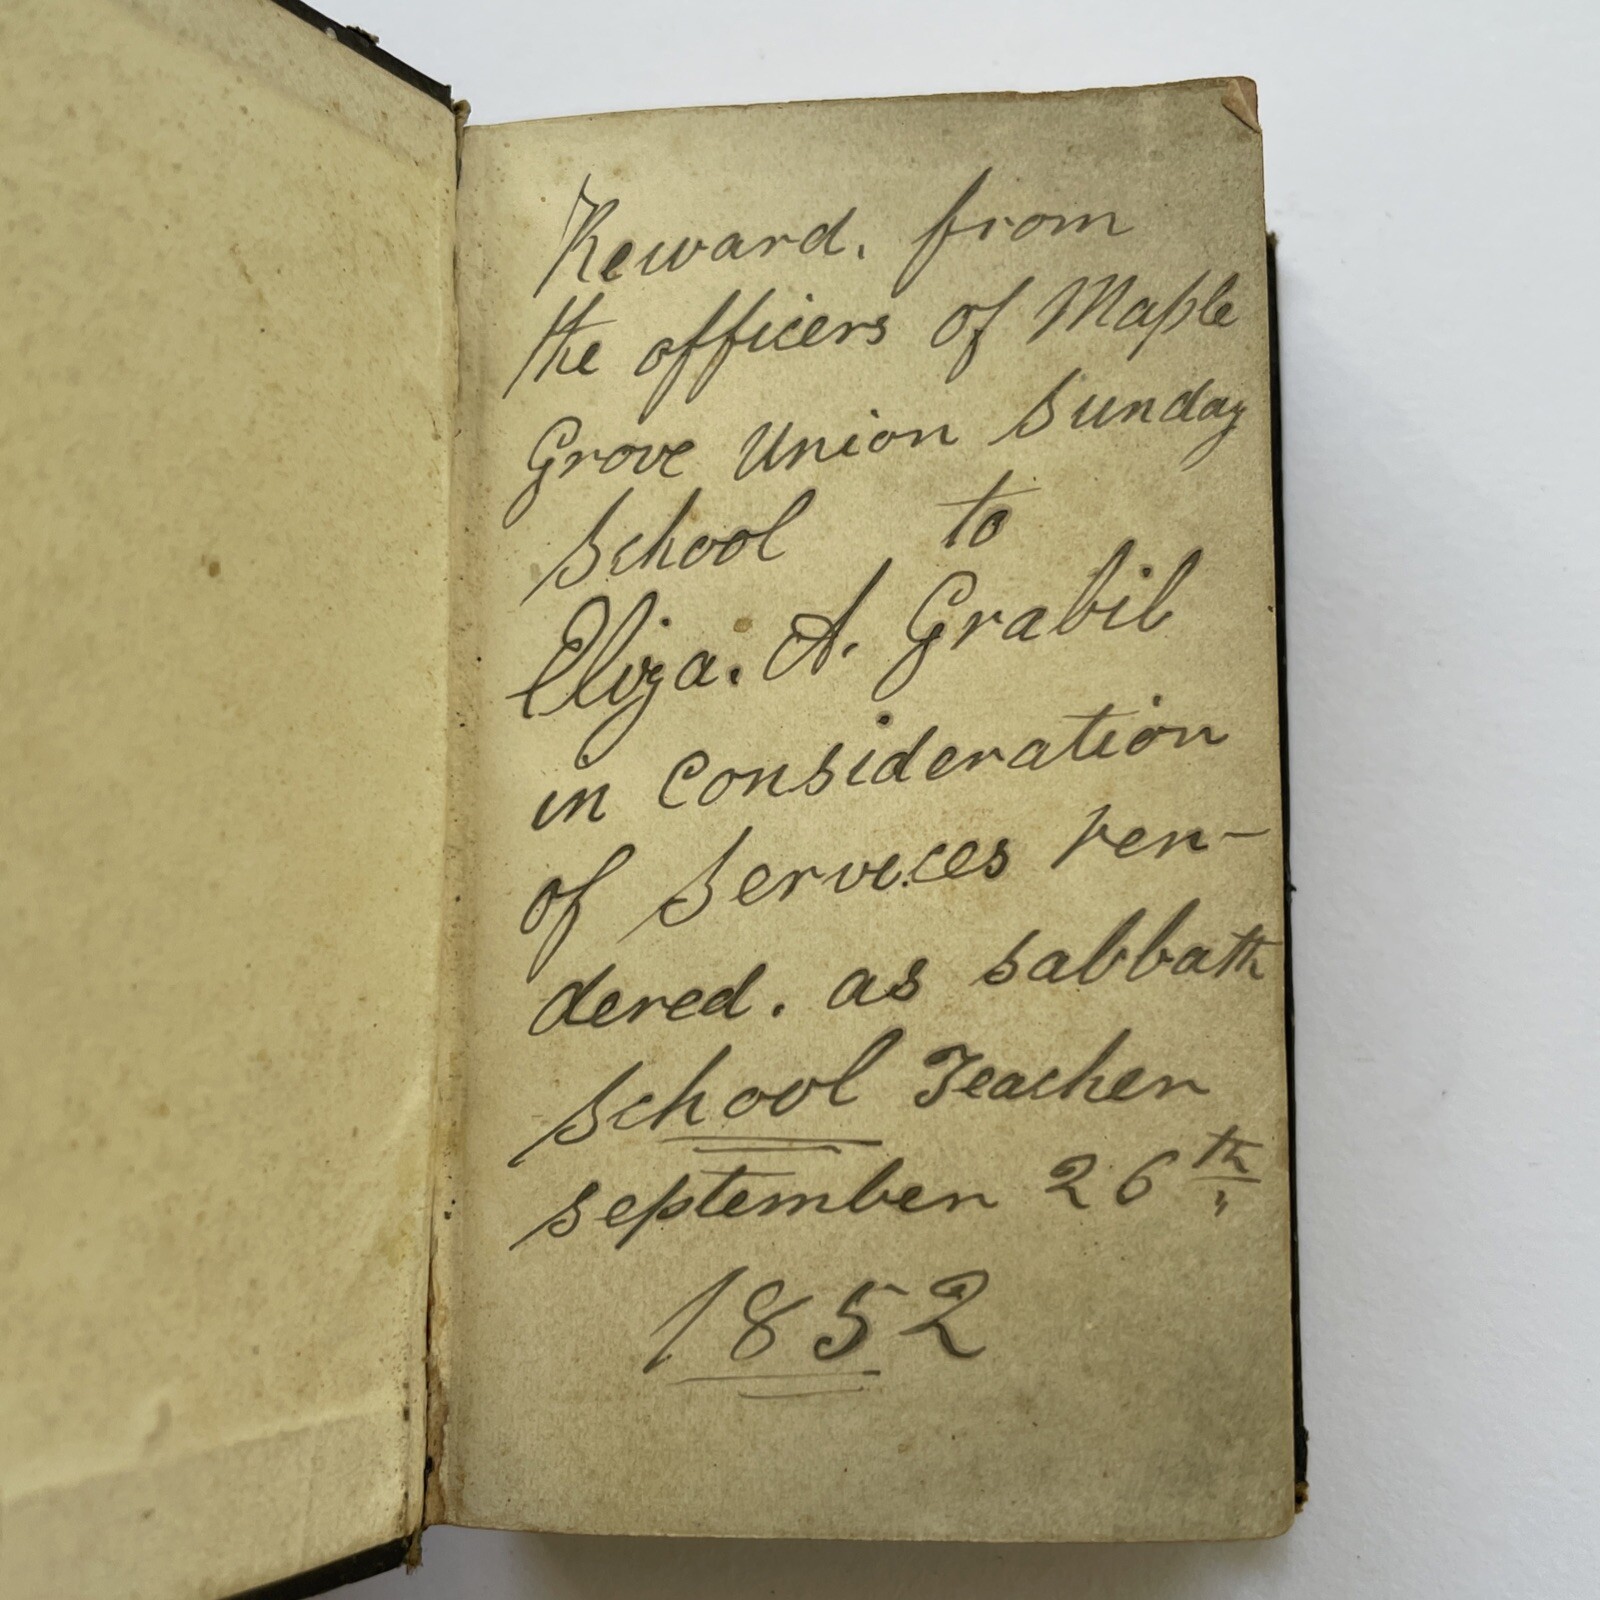 Reward. from
the officers of Maple
Grove Union Sunday
School to
Eliza. A. Grabil
in consideration
of Services ren-
dered. as sabbath
School Teacher
September 26th
1852